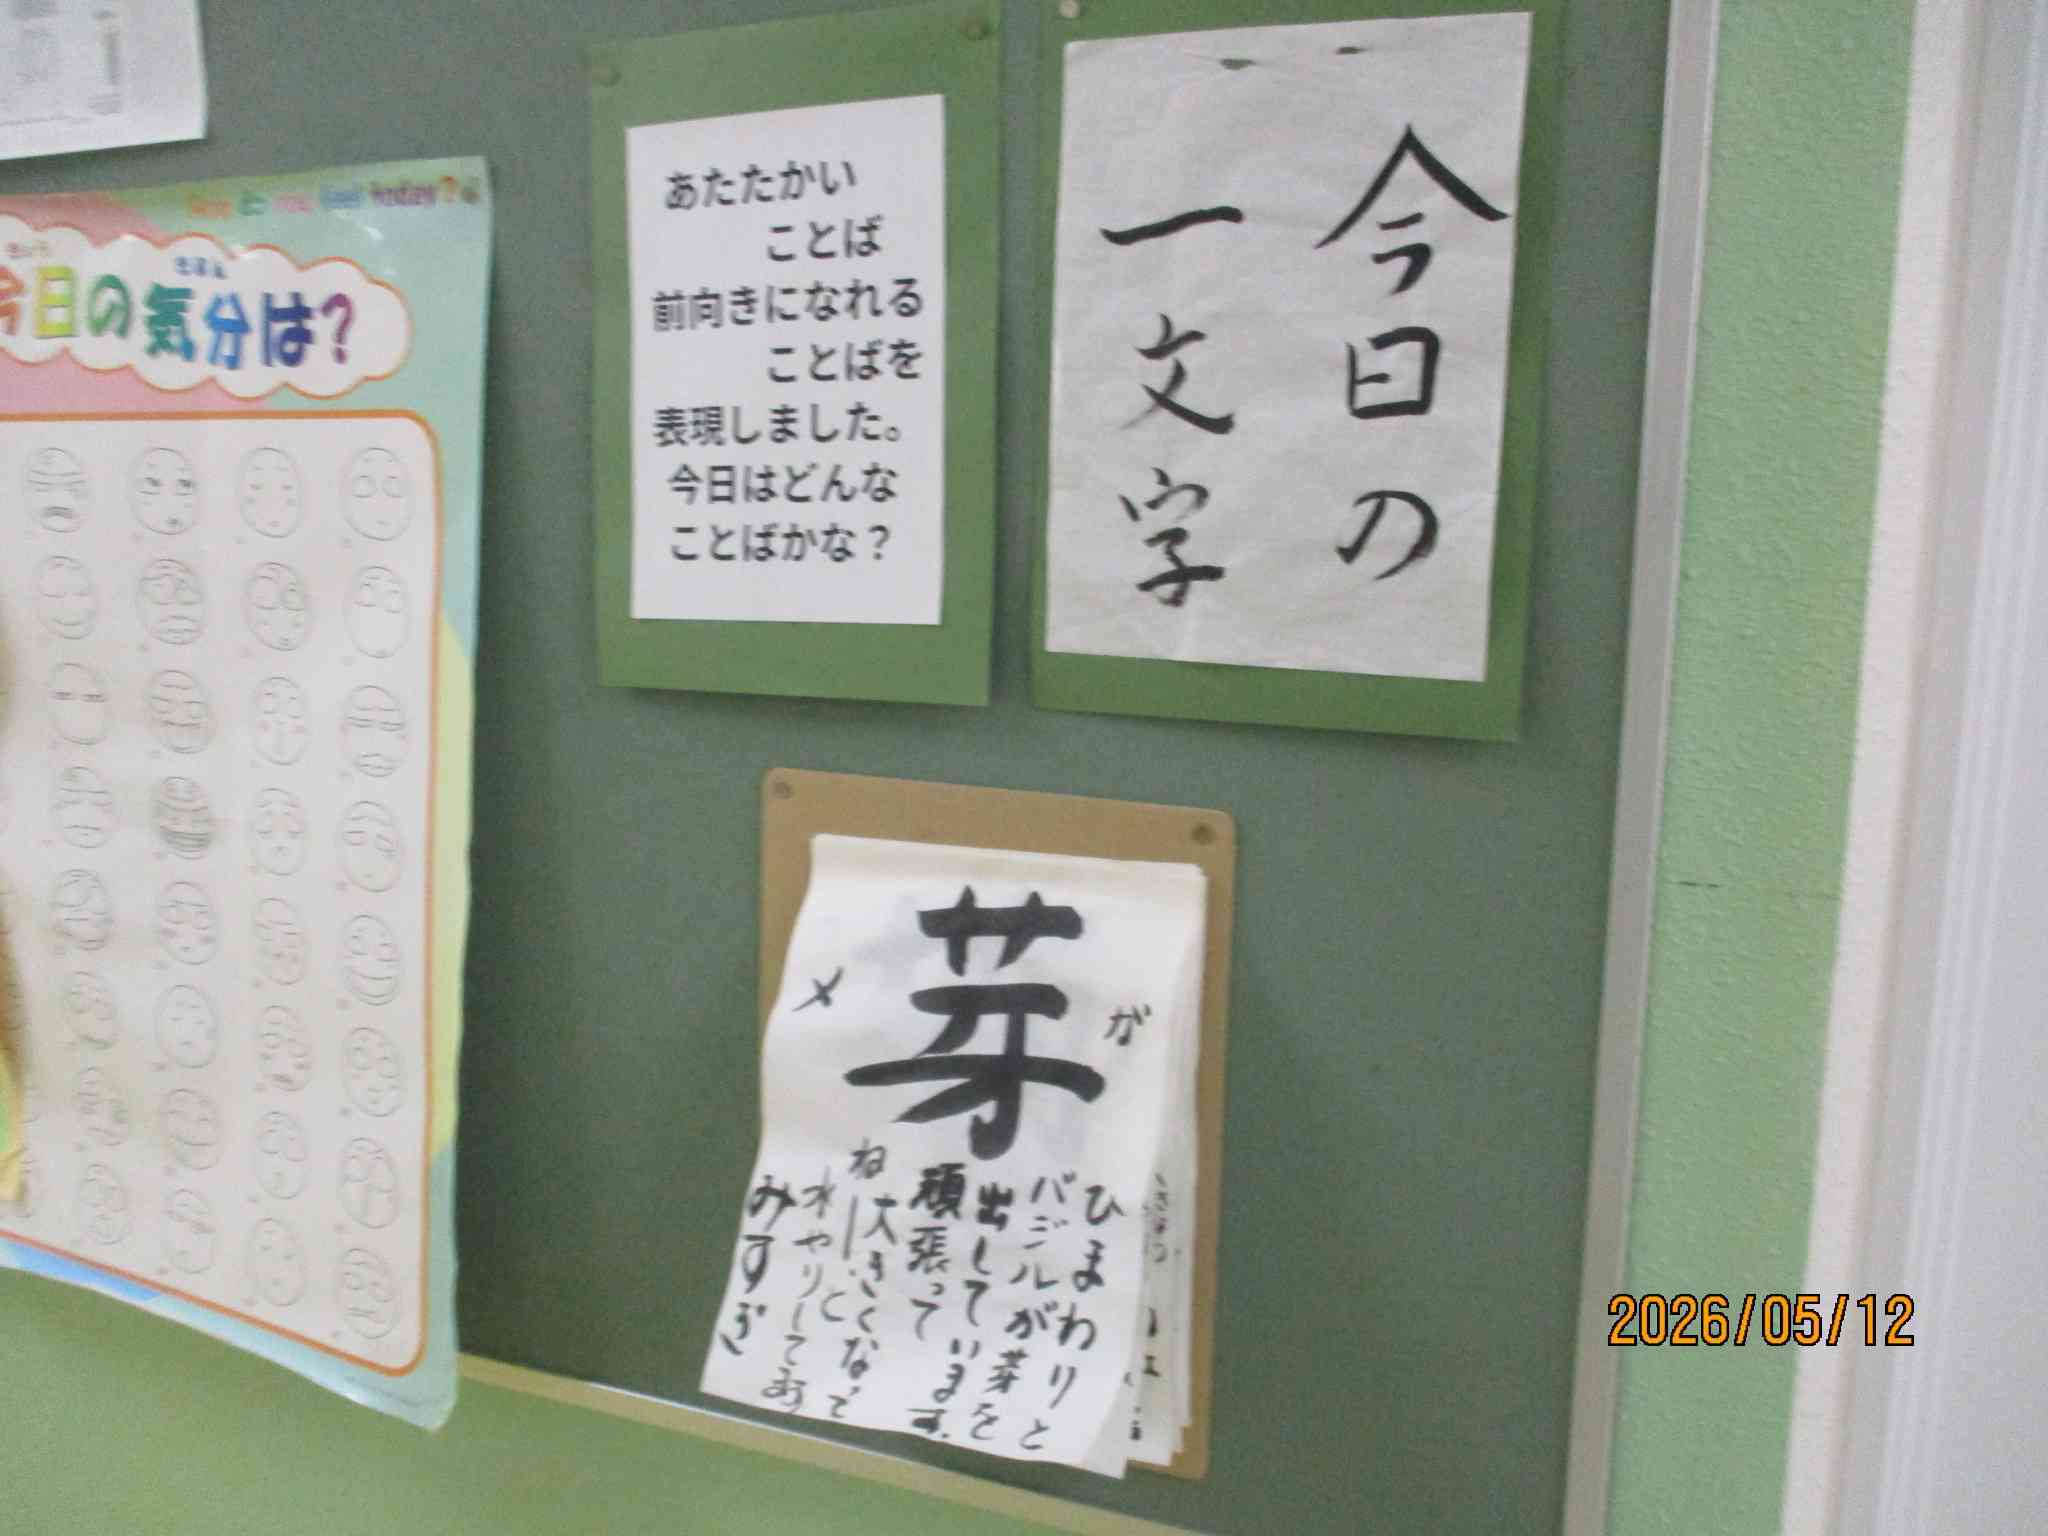 today?
きょう
きぶん
今日の気分は?
あたたかい
ことば
前向きになれる
ことばを
表現しました。
今日はどんな
ことばかな？
今日の
一文字
芽
ガ
メ
ひまわりと
バジルが芽を
出しています。
頑張って
大きくなって
ねー!と
水やりしてあ
みすず
2026/05/12